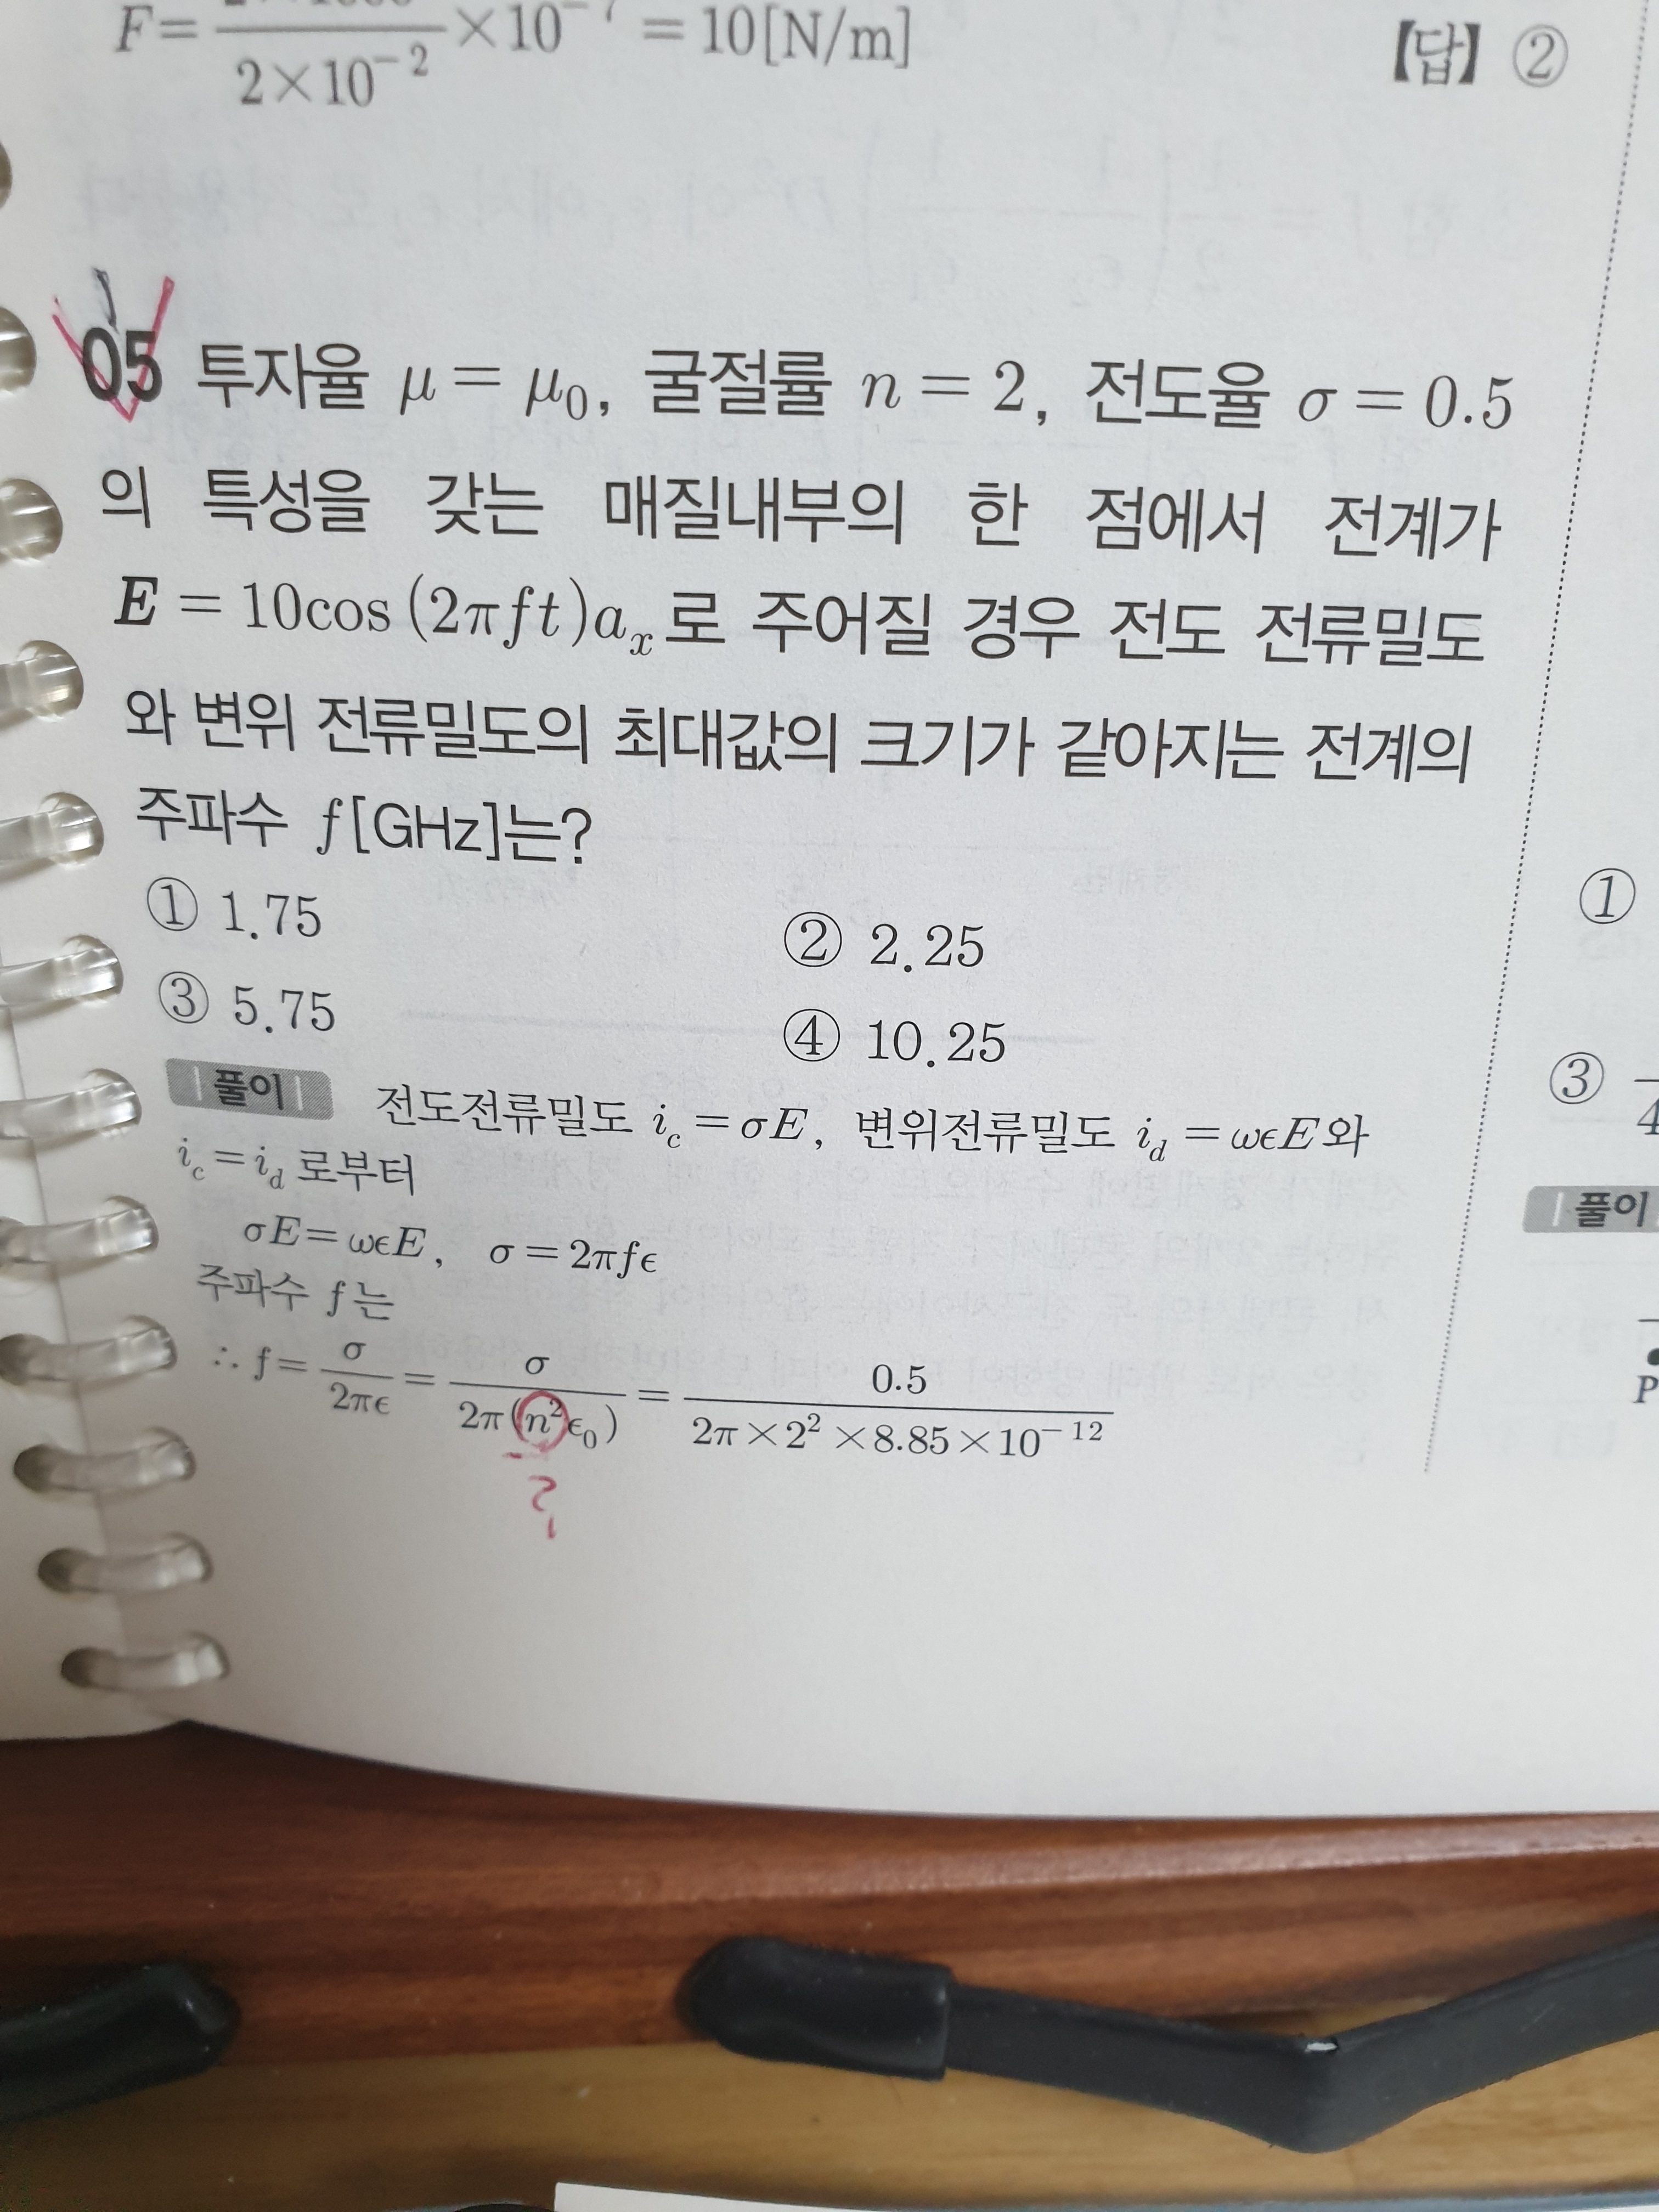 F= / 2×10⁻² ×10⁻⁷ = 10[N/m]
【답】 ②
05 투자율 μ = μ₀, 굴절률 n = 2, 전도율 σ = 0.5
의 특성을 갖는 매질내부의 한 점에서 전계가
E = 10cos (2πft)aₓ로 주어질 경우 전도 전류밀도
와 변위 전류밀도의 최대값의 크기가 같아지는 전계의
주파수 f[GHz]는?
① 1.75 ② 2.25
③ 5.75 ④ 10.25
풀이 전도전류밀도 i_c = σE, 변위전류밀도 i_d = ωϵE와
i_c = i_d 로부터
σE = ωϵE, σ = 2πfϵ
주파수 f는
∴ f = σ / 2πϵ = σ / 2π(n²ϵ₀) = 0.5 / 2π×2²×8.85×10⁻¹²
?
①
③
4
풀이
P